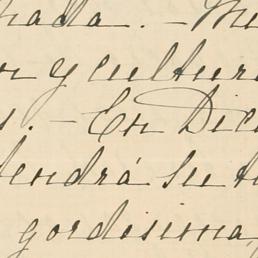 nada. - Mu
n y cultur
s. - En Dic
tendrá su t
gordisima,